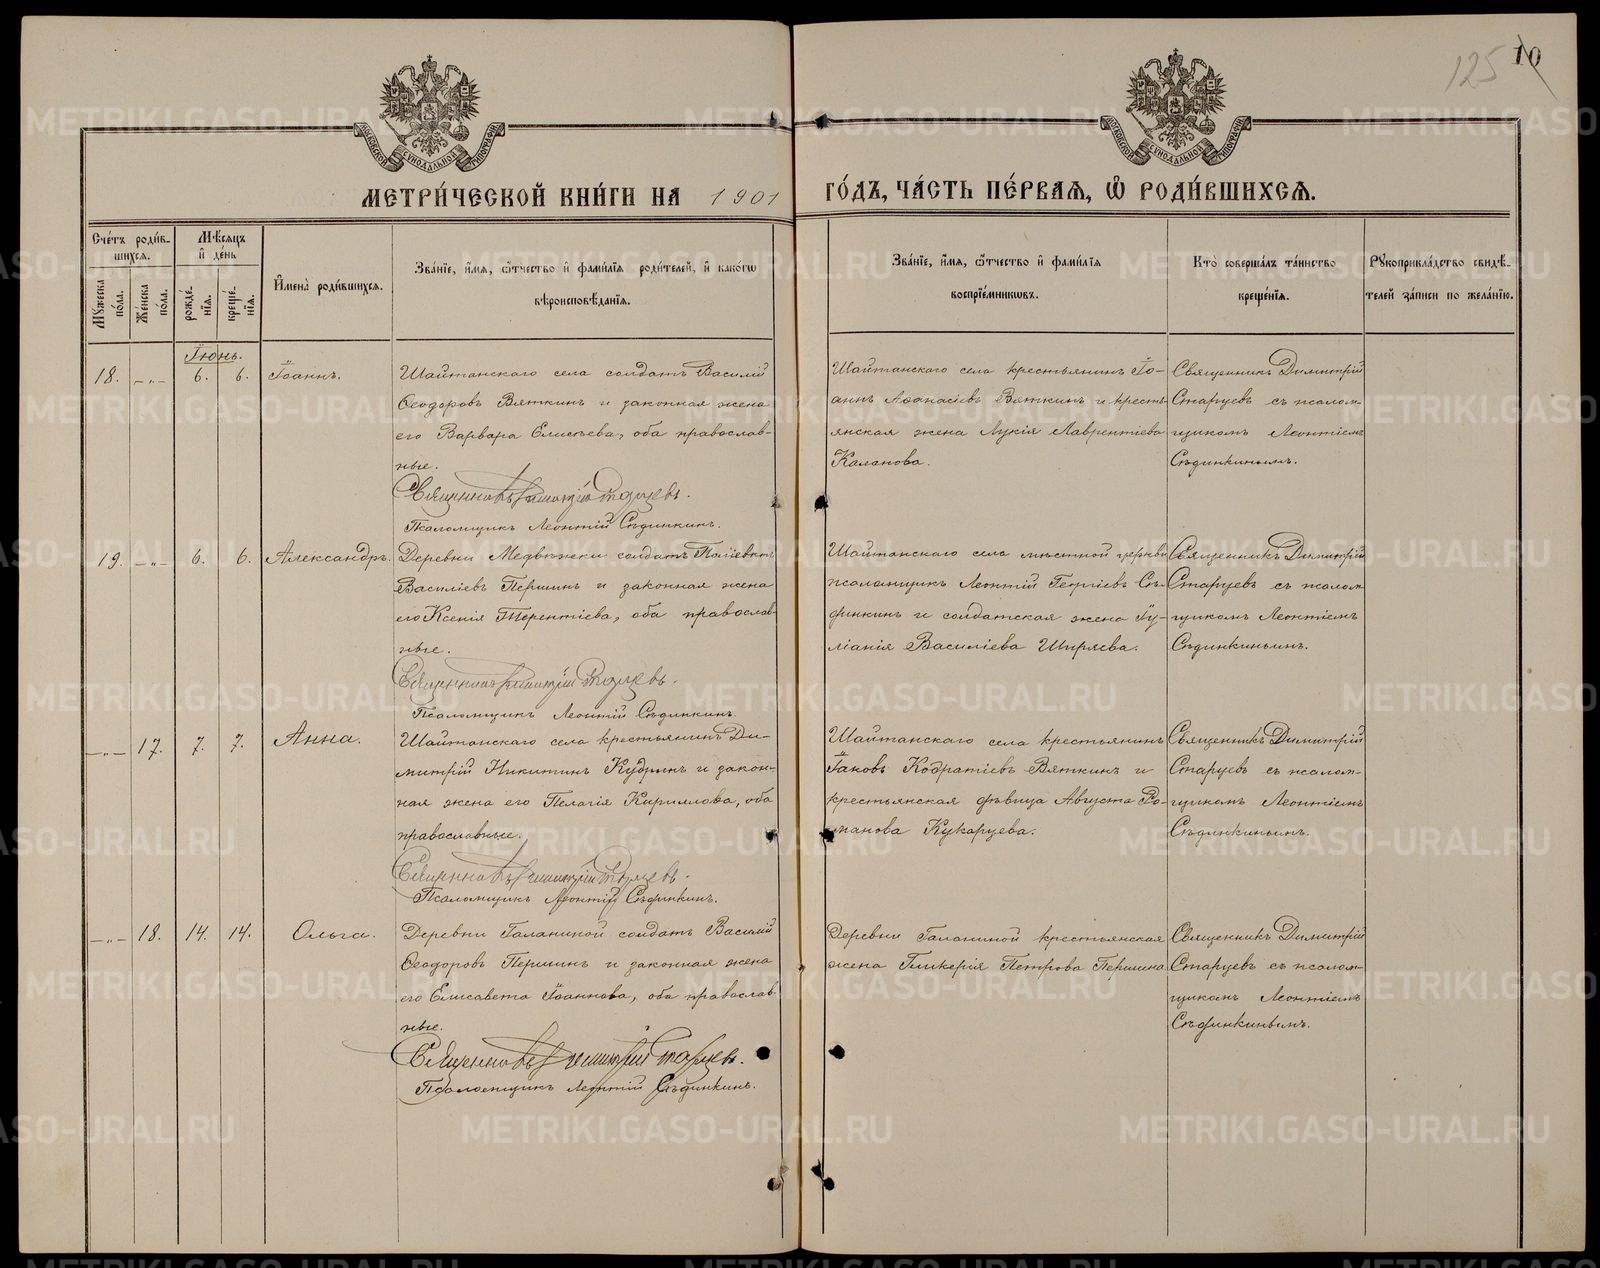 125 10
МОСКОВСКОЙ СѴНОДАЛЬНОЙ ТИПОГРАФІИ
МОСКОВСКОЙ СѴНОДАЛЬНОЙ ТИПОГРАФІИ
МЕТРИ́ЧЕСКОЙ КНИ́ГИ НА 1901 ГО́ДЪ, ЧА́СТЬ ПЕ́РВАѦ, Ѽ РОДИ́ВШИХСѦ.
Сче́тъ роди́в-
шихсѧ.
Мѣ́сѧцъ
и҆ де́нь
Мꙋ́жеска
по́ла.
Же́нска
по́ла.
рожде́-
нїѧ.
креще́-
нїѧ.
И҆мена̀ роди́вшихсѧ.
Зва́нїе, и҆́мѧ, ѻ҆́тчество и҆ фами́лїѧ роди́телей, и҆ како́гѡ
вѣроисповѣ́данїѧ.
Зва́нїе, и҆́мѧ, ѻ҆́тчество и҆ фами́лїѧ
воспрїе́мникѡвъ.
Кто̀ соверша́лъ та́инство
креще́нїѧ.
Рꙋкоприкла́дство свидѣ́-
телей за́писи по жела́нїю.
Іюнь.
18. -„- 6. 6. Іоаннъ.
Шайтанскаго села солдатъ Василій
Ѳеодоровъ Вяткинъ и законная жена
его Варвара Елисѣева, оба православ-
ные.
Священникъ Димитрій Старцевъ.
Псаломщикъ Леонтій Сѣдинкинъ.
Шайтанскаго села крестьянинъ Іо-
аннъ Аѳанасіевъ Вяткинъ и кресть-
янская жена Лукія Лаврентіева
Каланова.
Священникъ Димитрій
Старцевъ съ псалом-
щикомъ Леонтіемъ
Сѣдинкинымъ.
19. -„- 6. 6. Александръ.
Деревни Медвѣжки солдатъ
Василіевъ Першинъ и законная жена
его Ксенія Терентіева, оба православ-
ные.
Священникъ Димитрій Старцевъ.
Псаломщикъ Леонтій Сѣдинкинъ.
Шайтанскаго села мѣстной церкви
псаломщикъ Леонтій Георгіевъ Сѣ-
динкинъ и солдатская жена Іу-
ліанія Василіева Ширяева.
Священникъ Димитрій
Старцевъ съ псалом-
щикомъ Леонтіемъ
Сѣдинкинымъ.
-„- 17. 7. 7. Анна.
Шайтанскаго села крестьянинъ Ди-
митрій Никитинъ Кудринъ и закон-
ная жена его Пелагія Кириллова, оба
православные.
Священникъ Димитрій Старцевъ.
Псаломщикъ Леонтій Сѣдинкинъ.
Шайтанскаго села крестьянинъ
Іаковъ Кодратіевъ Вяткинъ и
крестьянская дѣвица Августа Ро-
манова Кукарцева.
Священникъ Димитрій
Старцевъ съ псалом-
щикомъ Леонтіемъ
Сѣдинкинымъ.
-„- 18. 14. 14. Ольга.
Деревни Галаниной солдатъ Василій
Ѳеодоровъ Першинъ и законная жена
его Елисавета Іоаннова, оба православ-
ные.
Священникъ Димитрій Старцевъ.
Псаломщикъ Леонтій Сѣдинкинъ.
Деревни Галаниной крестьянская
жена Гликерія Петрова Першина
Священникъ Димитрій
Старцевъ съ псалом-
щикомъ Леонтіемъ
Сѣдинкинымъ.
METRIKI.GASO-URAL.RU